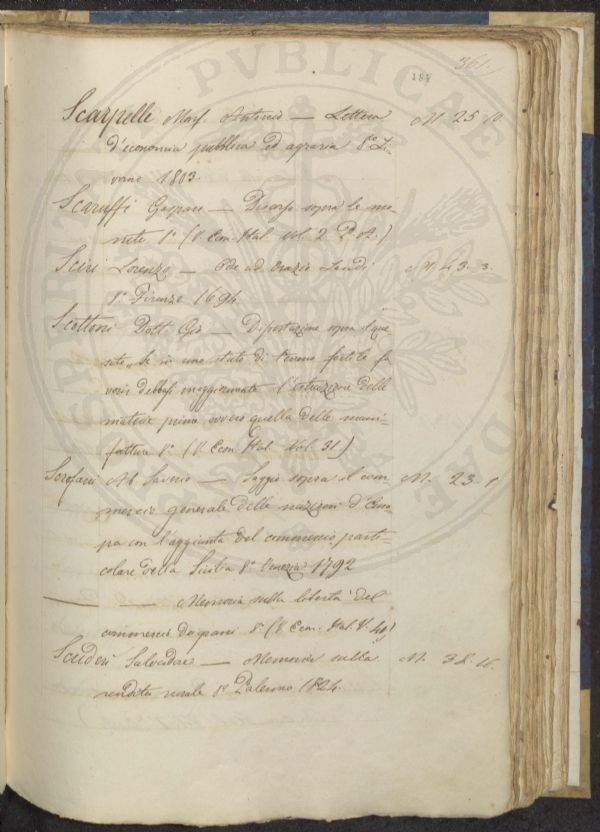 361
189
Scarpelli Marf. Antonio — Lettera M 25. 10.
d'economia pubblica ed agraria 8° Li-
vorno 1803.
Scaruffi Gaspare — Discorso sopra le mo-
nete 8° (V. Econ. Ital. Vol. 2 P. A.)
Sciri Lorenzo — Ode ad Orazio M 43. 3.
8° Firenze 1694
Scottoni Dott. Gio — Dissertazione sopra il que-
sito, Se in uno stato di terreno fertile fa
vorir debbasi maggiormente l'estrazione delle
materie prime ovvero quella delle mani-
fatture 8° (V. Econ. Ital. Vol. 31)
Scrofani Ab. Saverio — Saggio sopra il com M. 23. 1.
mercio generale delle nazioni d'Euro-
pa con l'aggiunta del commercio parti-
colare della Sicilia 8° Venezia 1792
— — Memoria sulla libertà del
commercio de grani 8° (V. Econ. Ital. V. 40)
Scuderi Salvadore — Memoria sulla M. 38. 16.
rendita rurale 8° Palermo 1824.
PVBLICAE